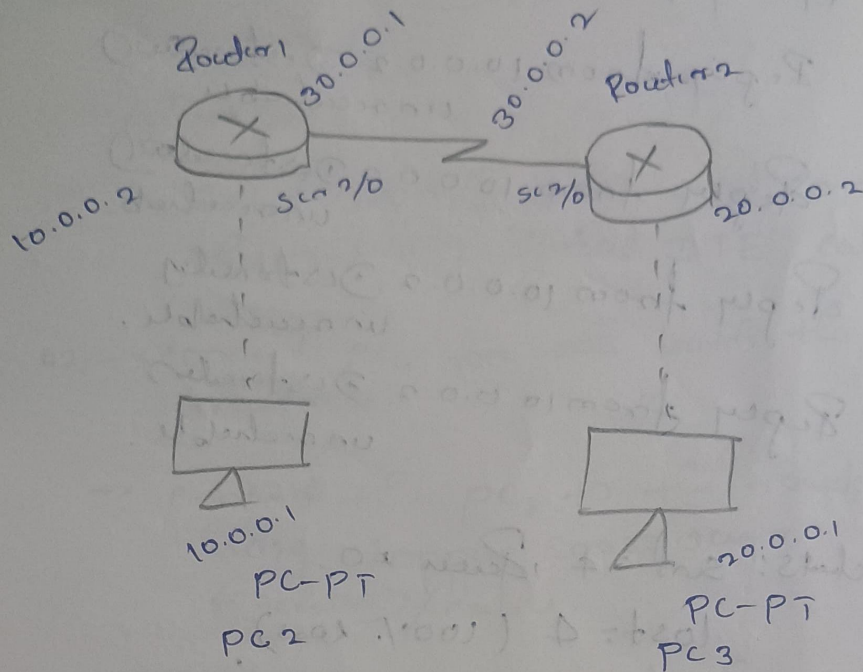 Router1
30.0.0.1
30.0.0.2
Router2
10.0.0.2
Se 2/0
20.0.0.2
10.0.0.1
PC-PT
PC2
20.0.0.1
PC-PT
PC3